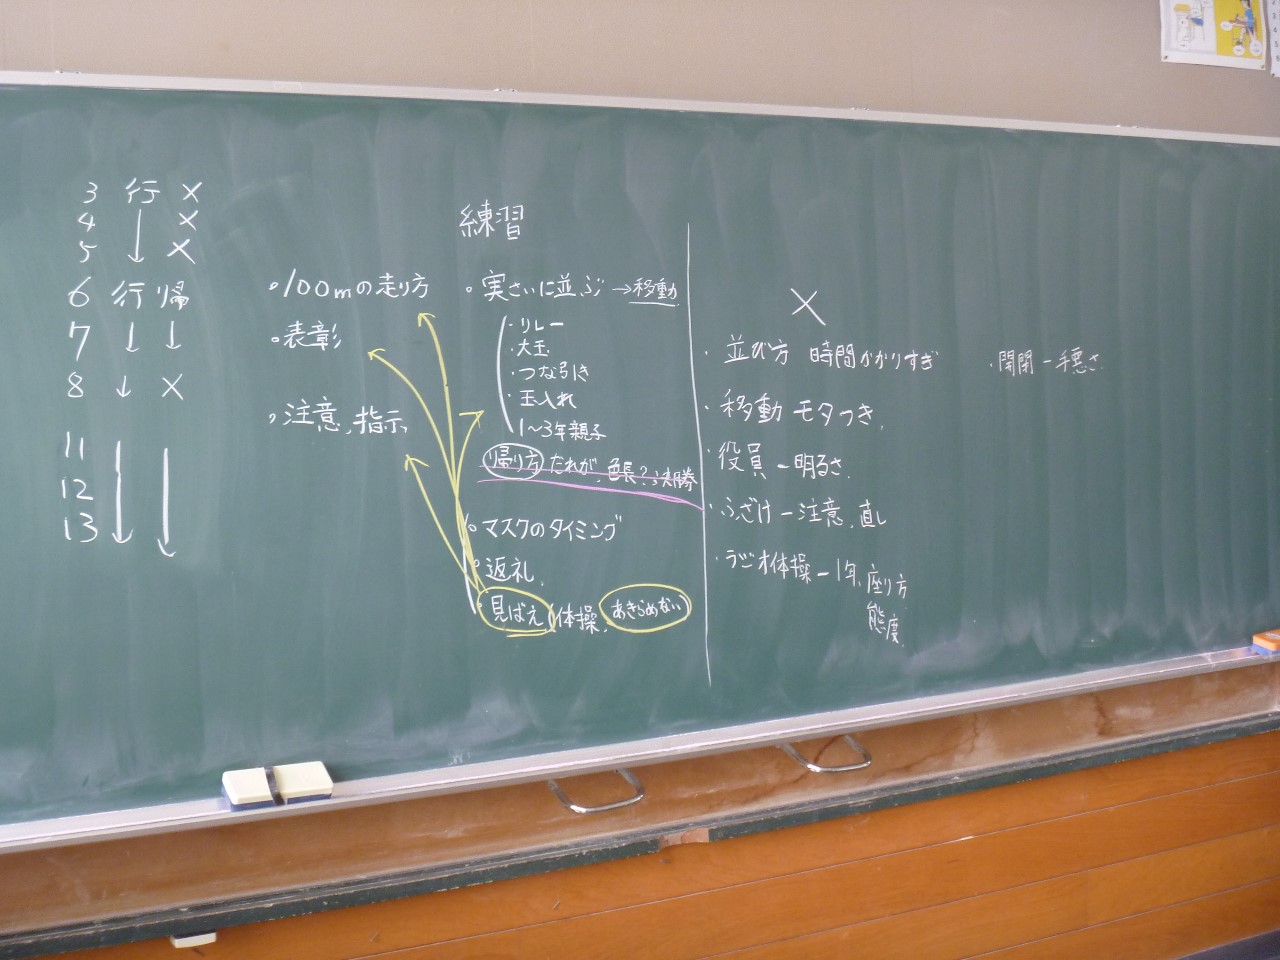 3 行 ×
4 ↓ ×
5 ×
6 行 帰
7 ↓ ↓
8 ↓ ×
11
12
13
練習
・100mの走り方
・表彰
・注意、指示、
・実さいに並ぶ→移動
・リレー
・大玉
・つな引き
・玉入れ
・1〜3年親子
帰り方 だれが、色長?決勝
・マスクのタイミング
・返礼、
・見ばえ(体操、あきらめない)
×
・並び方 時間かかりすぎ
・移動 モタつき、
・役員－明るさ、
・ふざけ－注意、直し
・ラジオ体操－1年、座り方
態度、
・開閉－手悪さ、